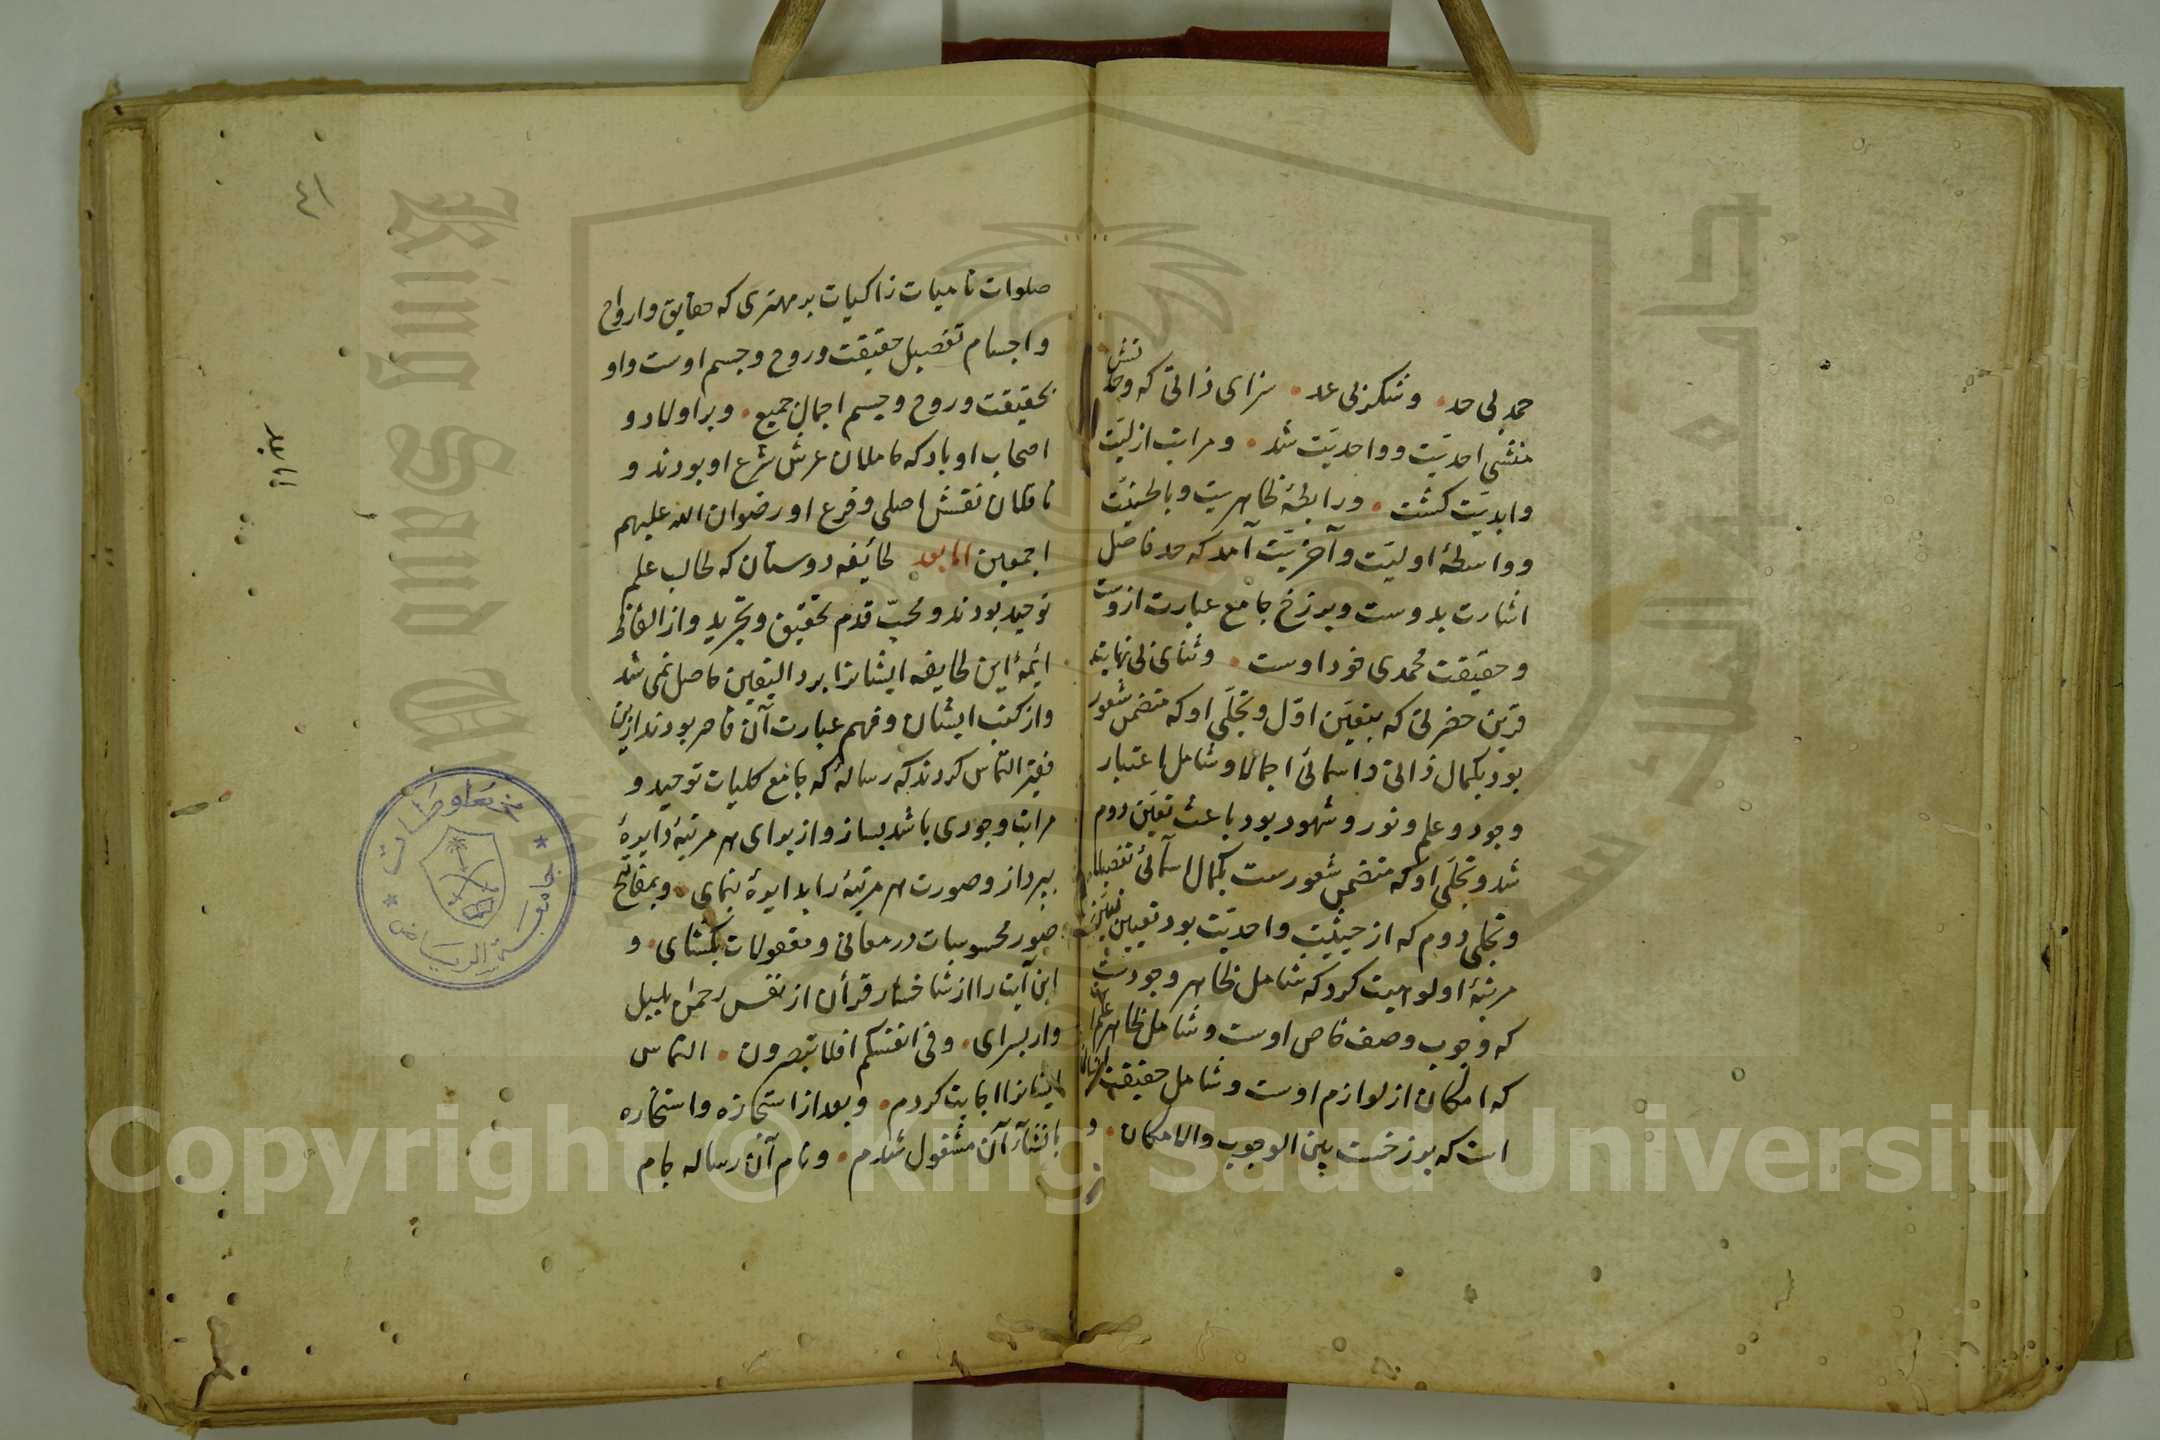 حمد بی حد • و شکر بی عد • سزای ذاتی که وحدتش
منشئ احدیّت و واحدیّت شد • و مراتب ازلیّت
و ابدیّت کشت • و رابطهٔ ظاهریت و باطنیّت
و واسطهٔ اولیّت و آخریّت آمد که حد فاصل
اشارت بدوست و برزخ جامع عبارت ازوست
و حقیقت محمدی خود اوست • و ثنای بی نهایت
قرین حضرتی که بتعیّن اوّل و تجلّی او که متضمن شعور
بود بکمال ذاتی و اسمائی اجمالا و شامل اعتبار
وجود و علم و نور و شهود بود باعث تعیّن دوم
شد و تجلّی او که متضمن شعورست بکمال اسمائی تفصیلا
و تجلی دوم که از حیثیت واحدیّت بود تعیین
مرتبهٔ اولوهیت کرد که شامل ظاهر وجودست
که وجوب وصف خاص اوست و شامل ظاهر علم است
که امکان از لوازم اوست و شامل حقیقت انسان
است که برزخست بین الوجوب والامکان • و
٤١
صلوات نامیات زاکیات بر مهتری که حقایق و ارواح
و اجسام تفصیل حقیقت و روح و جسم اوست و او
بحقیقت و روح و جسم اجمال جمیع • و بر اولاد و
اصحاب او باد که حاملان عرش شرع او بودند و
ناقلان نقش اصلی و فرع او رضوان الله علیهم
اجمعین اما بعد طائفه دوستان که طالب علم
توحید بودند و محبّ قدم تحقیق و تجرید و از الفاظ
ائمهٔ این طایفه ایشانرا برد الیقین حاصل نمی شد
و از کتب ایشان و فهم عبارت آن قاصر بودند ازین
فقیر التماس کردند که رسالهٔ که جامع کلیات توحید و
مراتب وجودی باشد بساز و از برای هر مرتبهٔ دایرهٔ
بپرداز و صورت هر مرتبهٔ را بدایرهٔ بنمای • و بمفاتیح
صور محسوسات در معانی و معقولات بکشای • و
این آیت را از شاخسار قرآن از نفس رحمن بلبل
وار بسرای • وفی انفسکم افلا تبصرون • التماس
ایشانرا اجابت کردم • و بعد از استجازه و استخاره
بانشآء آن مشغول شدم • و نام آن رساله جام
مخطوطات
جامعة الرياض
جامعة الملك سعود
King Saud University
Copyright © King Saud University